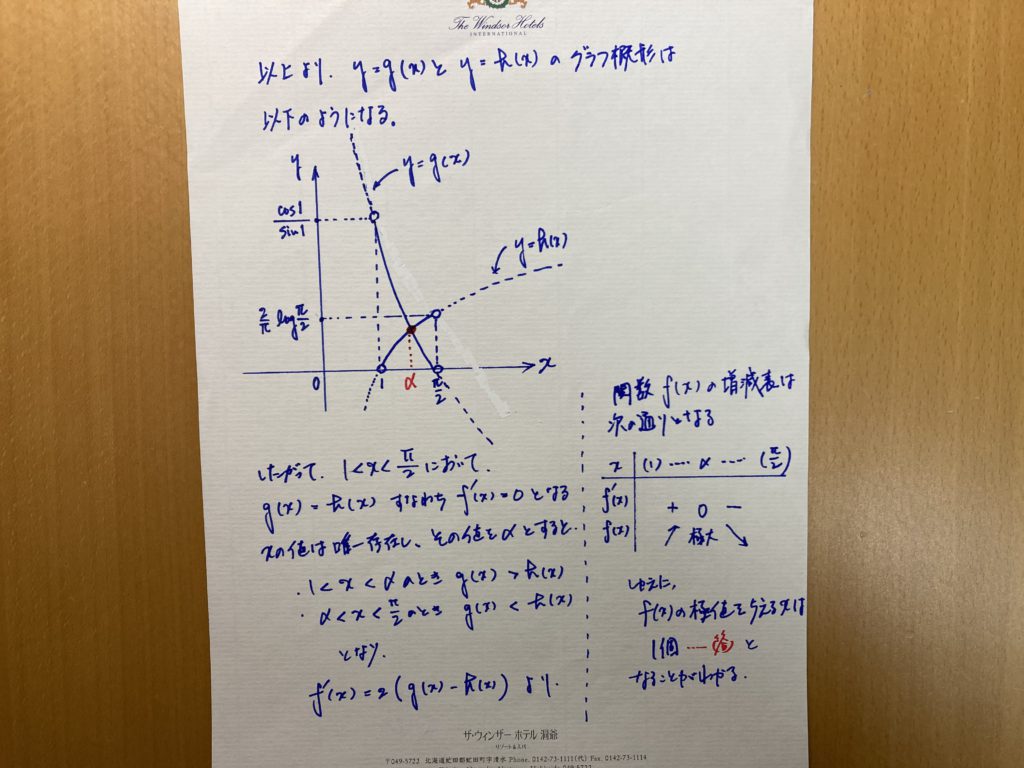 The Windsor Hotels
INTERNATIONAL
以上より、y=g(x)とy=h(x)のグラフ概形は
以下のようになる。
y
y=g(x)
cos1/sin1
y=h(x)
2/π log π/2
0
1
α
π/2
x
したがって、1<x<π/2において、
g(x)=h(x) すなわち f'(x)=0となる
xの値は唯一存在し、その値をαとすると、
・1<x<αのとき g(x)>h(x)
・α<x<π/2のとき g(x)<h(x)
となり、
f'(x)=2(g(x)-h(x))より、
関数f(x)の増減表は
次の通りとなる
x (1) ---- α ---- (π/2)
f'(x) + 0 −
f(x) ↗ 極大 ↘
ゆえに、
f(x)の極値を与えるxは
1個 ---- (答) と
なることがわかる。
ザ・ウィンザー ホテル 洞爺
リゾート&スパ
〒049-5722 北海道虻田郡虻田町字清水 Phone. 0142-73-1111(代) Fax. 0142-73-1114